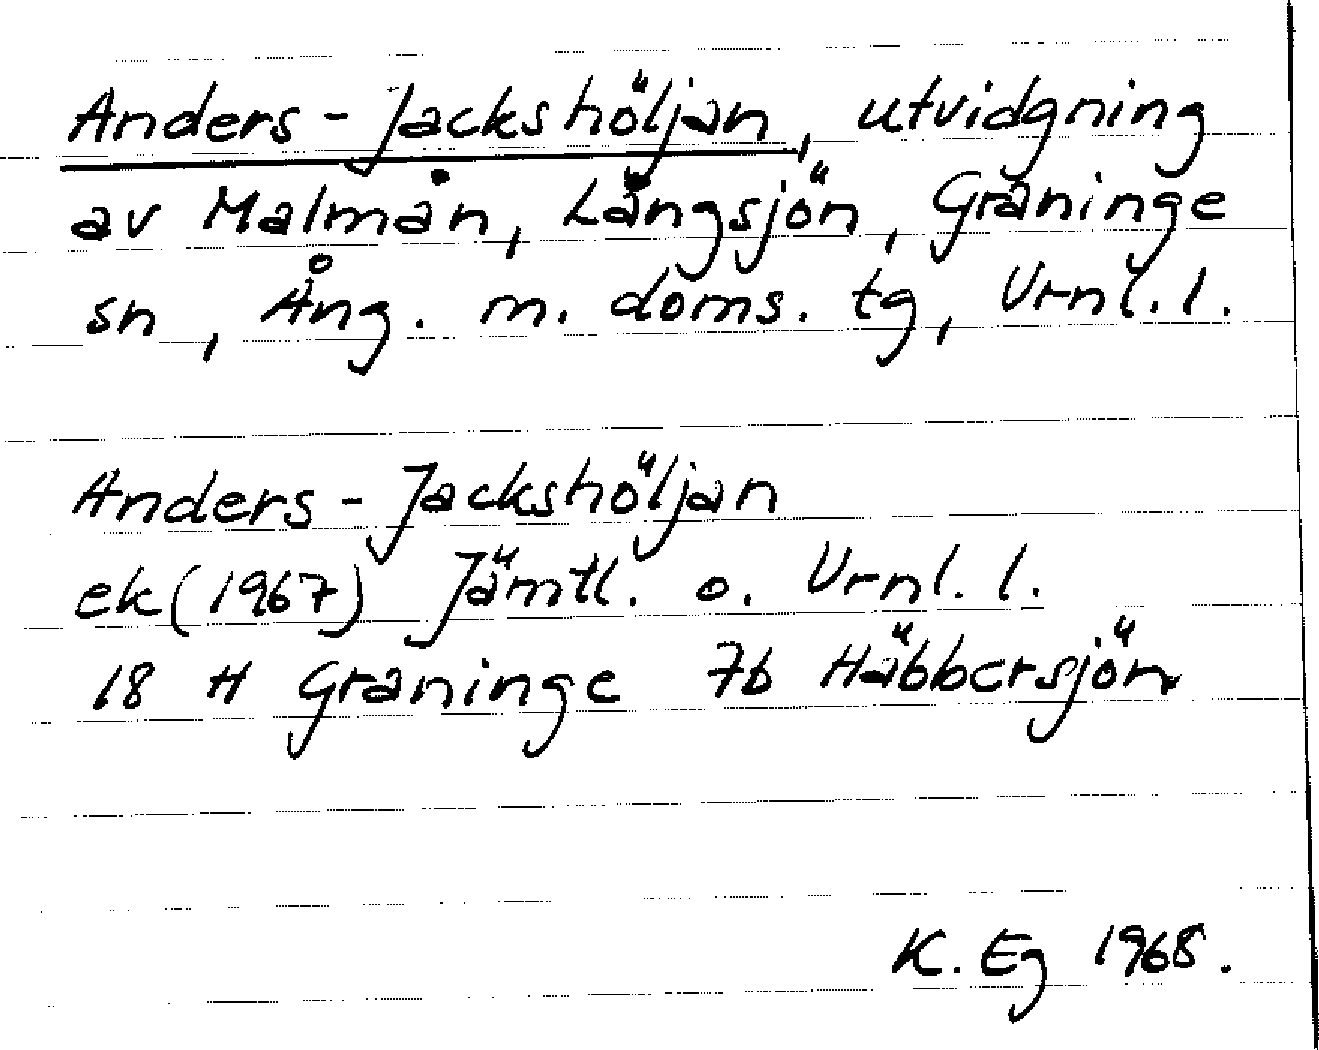 Anders-Jackshöljan, utvidgning
av Malmån, Långsjön, Graninge
sn, Ång. m. doms. tg, Vrnl. l.
Anders-Jackshöljan
ek (1967) Jämtl. o. Vrnl. l.
18 H Graninge 7b Häbbersjön
K. Eg 1968.